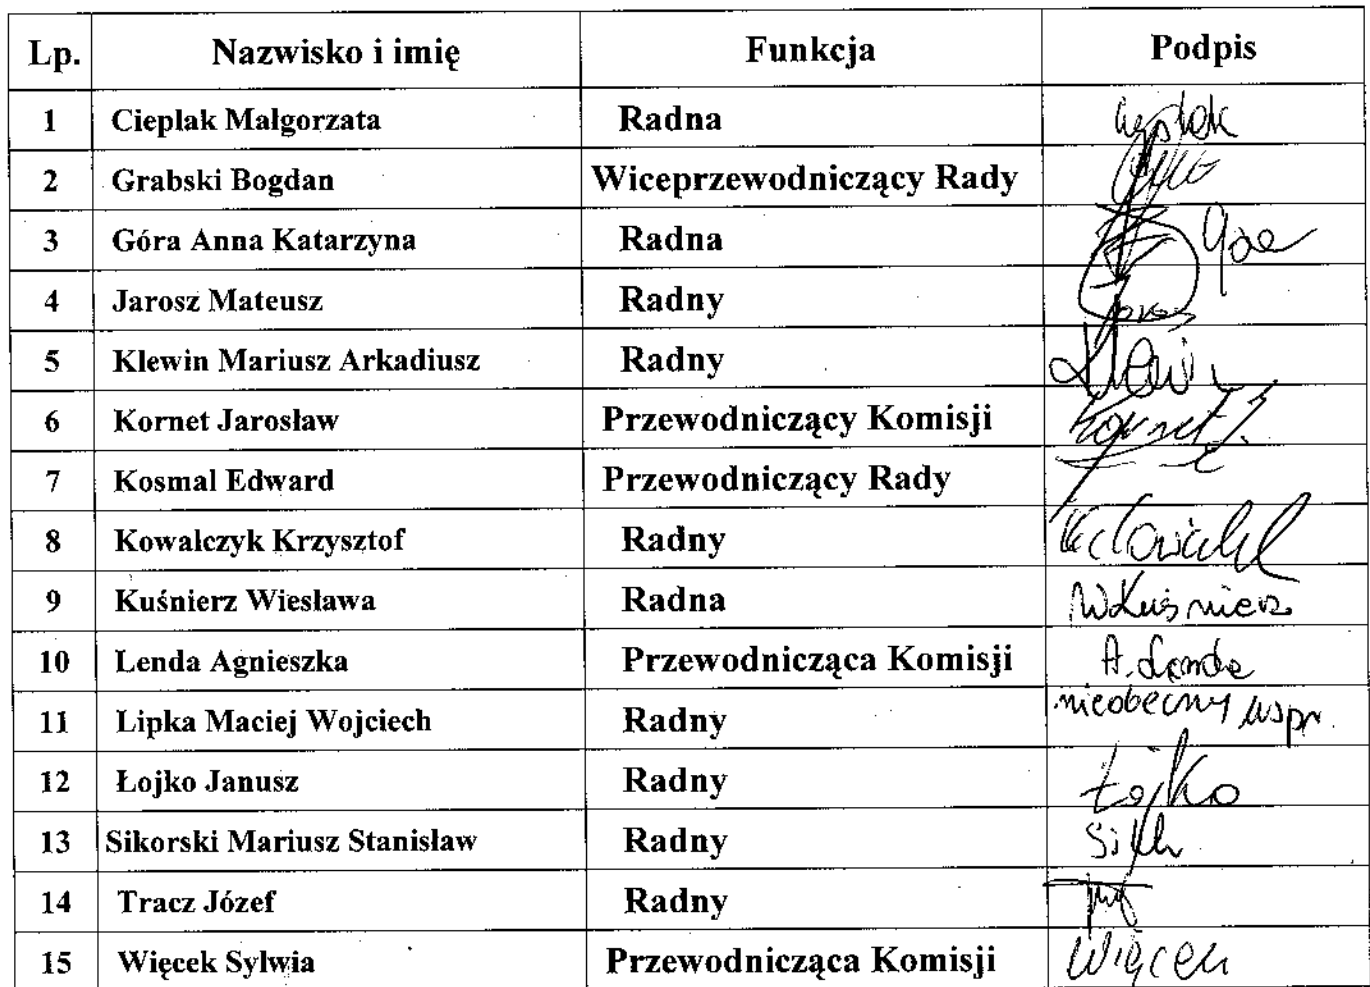 Lp. Nazwisko i imię Funkcja Podpis
1 Cieplak Małgorzata Radna
2 Grabski Bogdan Wiceprzewodniczący Rady
3 Góra Anna Katarzyna Radna
4 Jarosz Mateusz Radny
5 Klewin Mariusz Arkadiusz Radny
6 Kornet Jarosław Przewodniczący Komisji Kornet
7 Kosmal Edward Przewodniczący Rady
8 Kowalczyk Krzysztof Radny
9 Kuśnierz Wiesława Radna WKuśnierz
10 Lenda Agnieszka Przewodnicząca Komisji A. Lenda
11 Lipka Maciej Wojciech Radny nieobecny uspr.
12 Łojko Janusz Radny Łojko
13 Sikorski Mariusz Stanisław Radny
14 Tracz Józef Radny
15 Więcek Sylwia Przewodnicząca Komisji Więcek